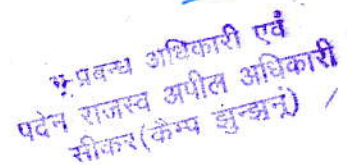 भू प्रबन्ध अधिकारी एवं
पदेन राजस्व अपील अधिकारी
सीकर(कैम्प झुन्झुनूं) /